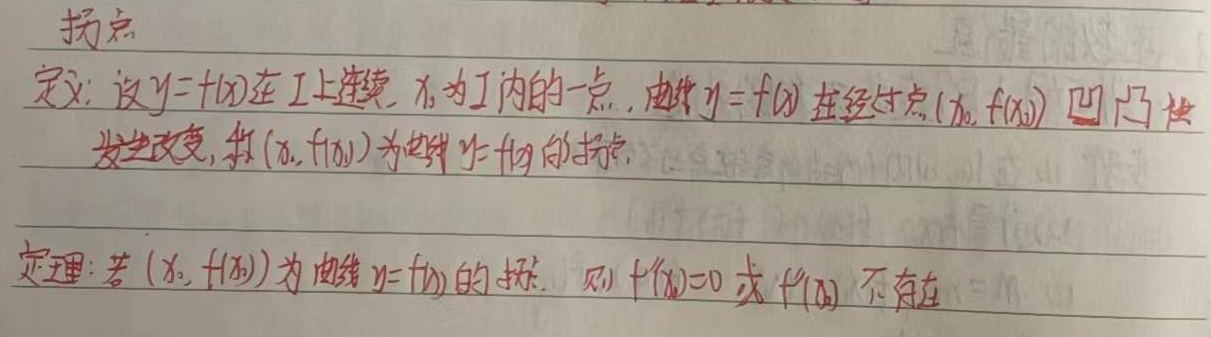 拐点
定义: 设y=f(x)在I上连续, x₀为I内的一点, 曲线y=f(x)在经过点(x₀, f(x₀)) 凹凸性
发生改变, 称(x₀, f(x₀))为曲线y=f(x)的拐点.
定理: 若(x₀, f(x₀))为曲线y=f(x)的拐点. 则f''(x₀)=0或f''(x₀)不存在